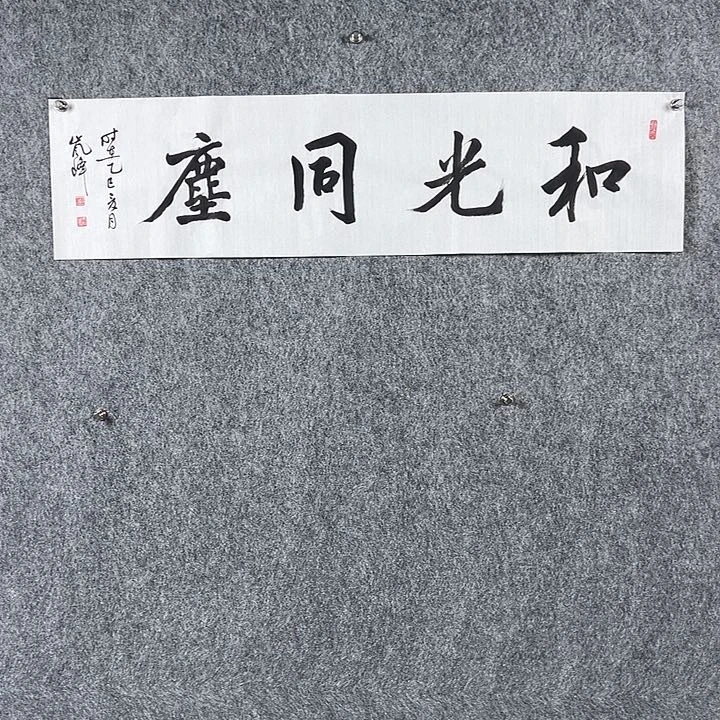 和光同塵
时在乙巳亥月
岚峰